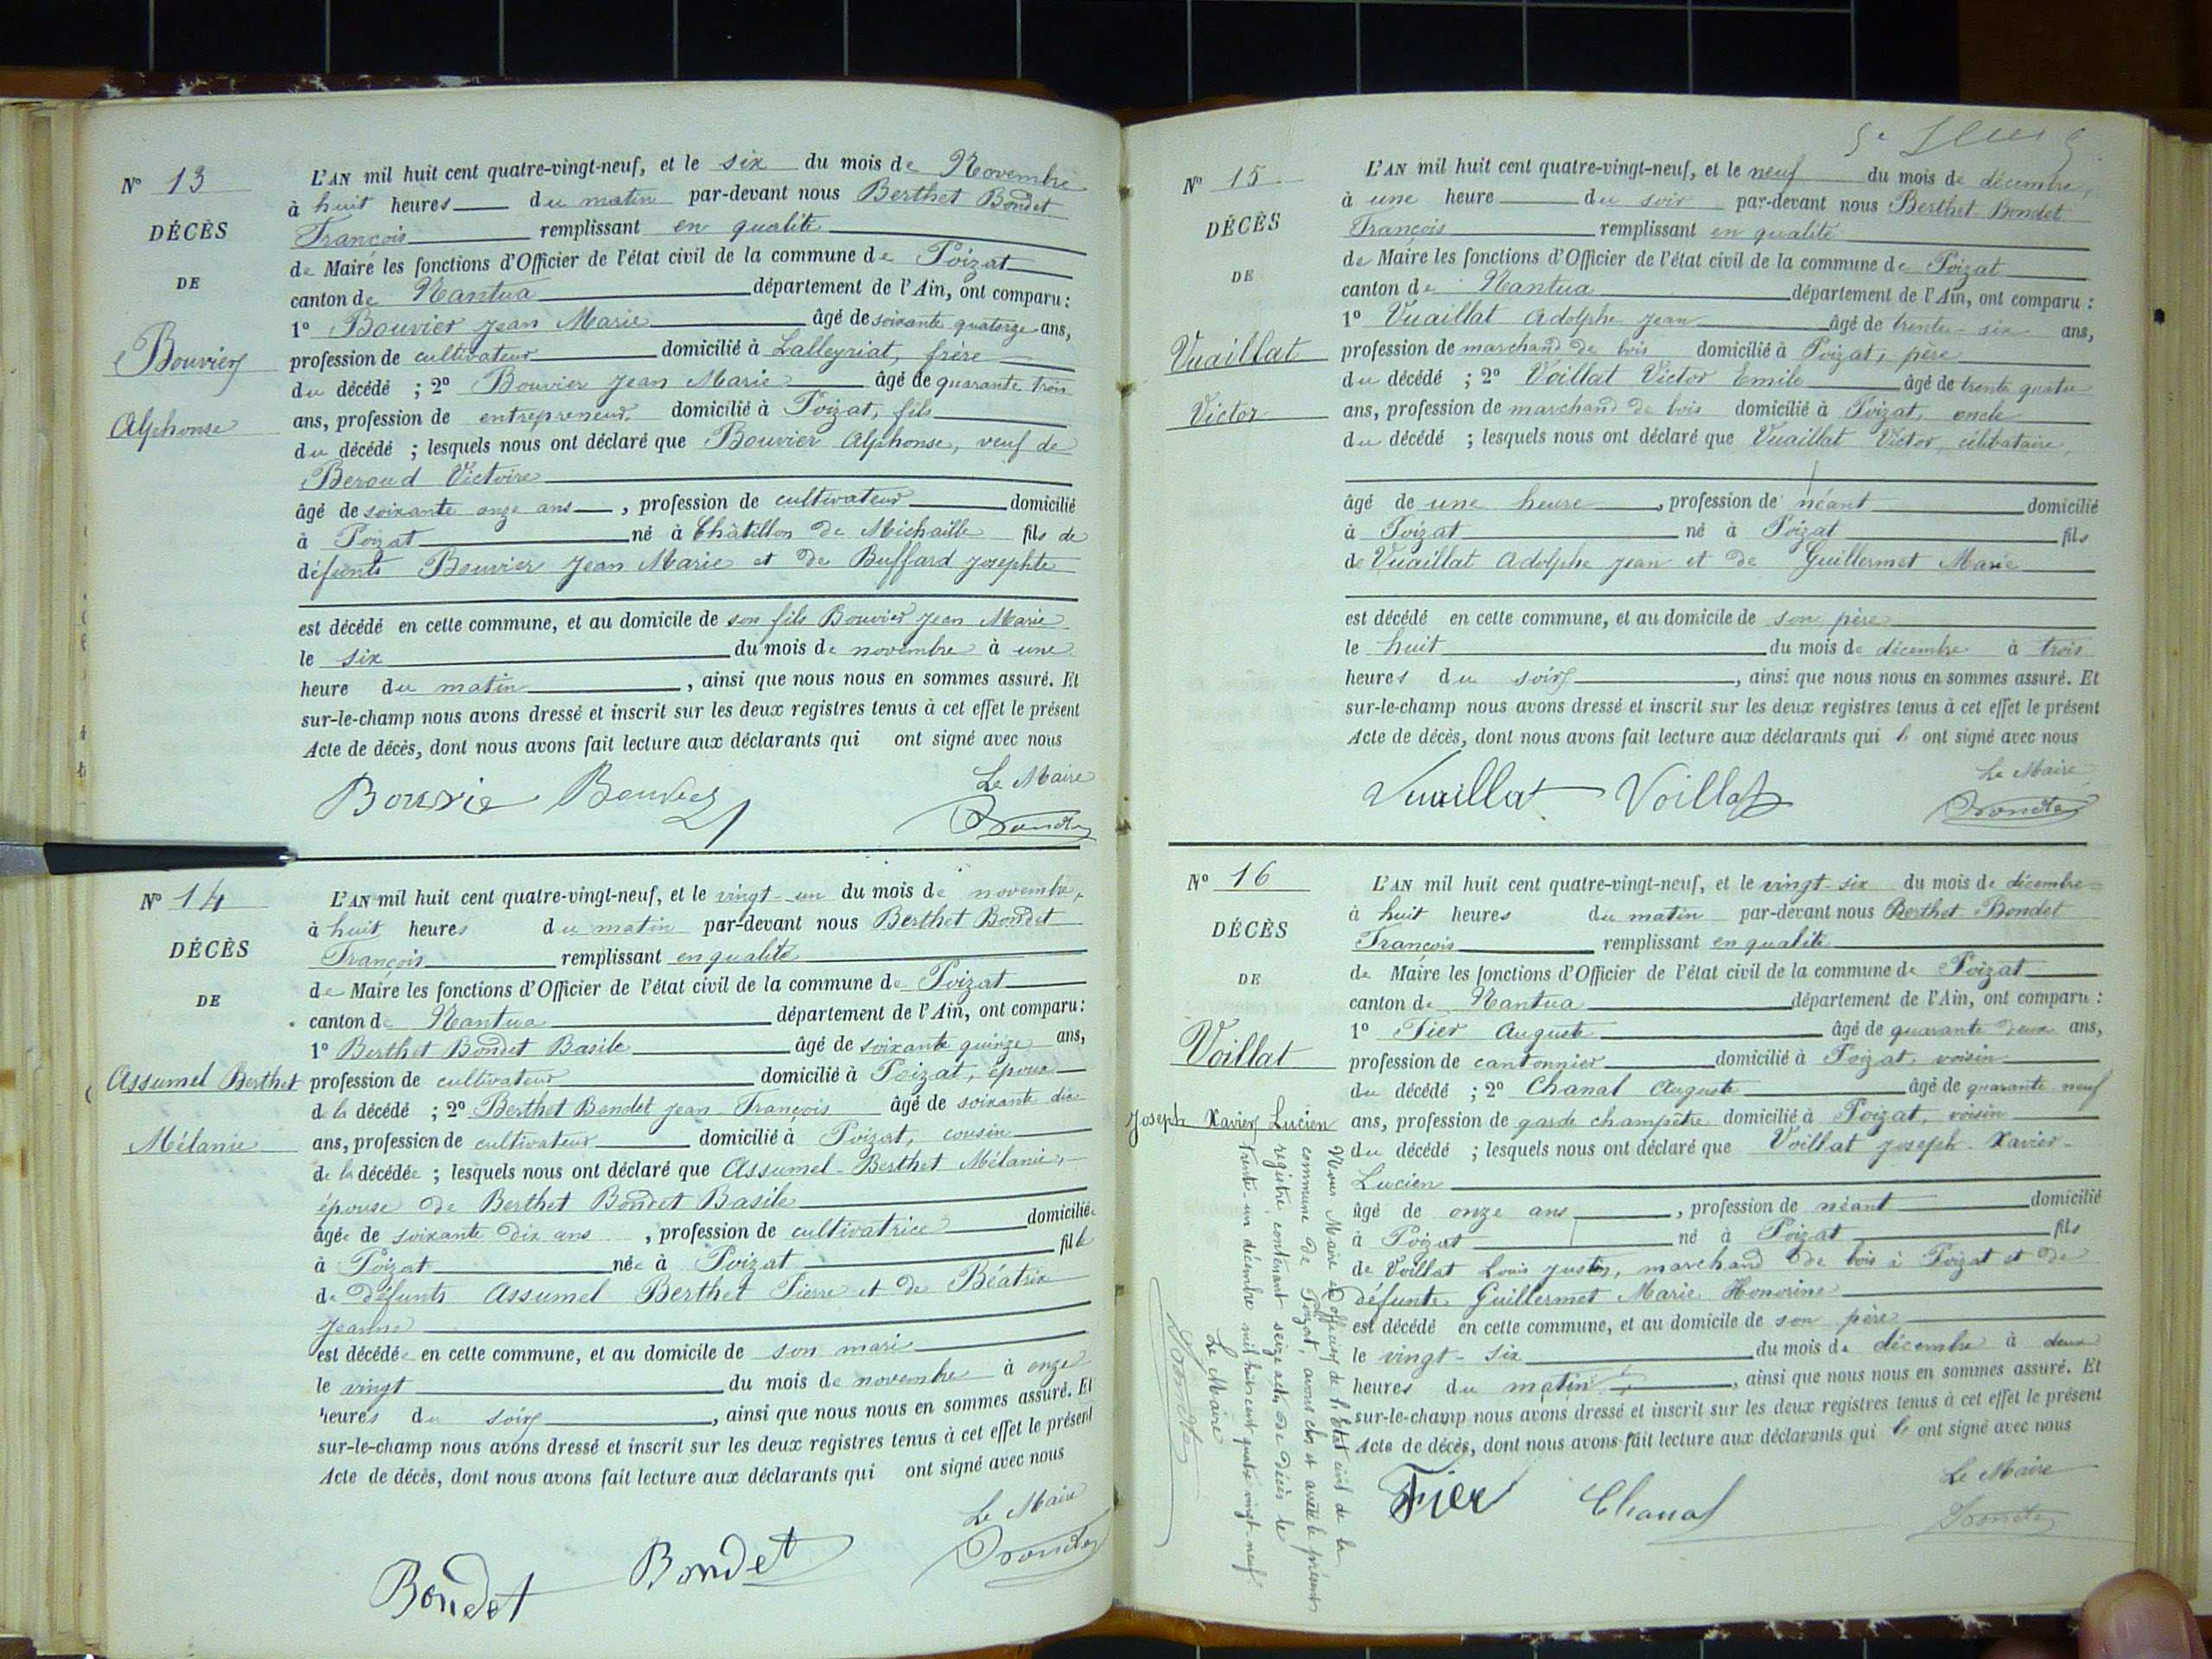 Nº 13
DÉCÈS
DE
Bouvier
Alphonse
L'AN mil huit cent quatre-vingt-neuf, et le six du mois de Novembre
à huit heures du matin par-devant nous Berthet Bondet
François remplissant en qualité
de Maire les fonctions d'Officier de l'état civil de la commune de Poizat
canton de Nantua département de l'Ain, ont comparu :
1º Bouvier Jean Marie âgé de soixante quatorze ans,
profession de cultivateur domicilié à Lalleyriat, frère
du décédé ; 2º Bouvier Jean Marie âgé de quarante trois
ans, profession de entrepreneur domicilié à Poizat, fils
du décédé ; lesquels nous ont déclaré que Bouvier Alphonse, veuf de
Beroud Victoire
âgé de soixante onze ans , profession de cultivateur domicilié
à Poizat né à Châtillon de Michaille fils de
défunts Bouvier Jean Marie et de Buffard Josephte
est décédé en cette commune, et au domicile de son fils Bouvier Jean Marie
le six du mois de novembre à une
heure du matin , ainsi que nous nous en sommes assuré. Et
sur-le-champ nous avons dressé et inscrit sur les deux registres tenus à cet effet le présent
Acte de décès, dont nous avons fait lecture aux déclarants qui ont signé avec nous
Le Maire
Bouvie Bouvier
Nº 14
DÉCÈS
DE
Assumel Berthet
Mélanie
L'AN mil huit cent quatre-vingt-neuf, et le vingt-un du mois de novembre,
à huit heures du matin par-devant nous Berthet Bondet
François remplissant en qualité
de Maire les fonctions d'Officier de l'état civil de la commune de Poizat
canton de Nantua département de l'Ain, ont comparu :
1º Berthet Bondet Basile âgé de soixante quinze ans,
profession de cultivateur domicilié à Poizat, époux
de la décédé ; 2º Berthet Bondet Jean-François âgé de soixante dix
ans, profession de cultivateur domicilié à Poizat, cousin
de la décédée ; lesquels nous ont déclaré que Assumel-Berthet Mélanie,
épouse de Berthet Bondet Basile
âgée de soixante dix ans , profession de cultivatrice domiciliée
à Poizat née à Poizat fille
de défunts Assumel Berthet Pierre et de Béatrix
Jeanne
est décédée en cette commune, et au domicile de son mari
le vingt du mois de novembre à onze
heures du soir , ainsi que nous nous en sommes assuré. Et
sur-le-champ nous avons dressé et inscrit sur les deux registres tenus à cet effet le présent
Acte de décès, dont nous avons fait lecture aux déclarants qui ont signé avec nous
Le Maire
Bondet Bondet
Nº 15
DÉCÈS
DE
Vuaillat
Victor
L'AN mil huit cent quatre-vingt-neuf, et le neuf du mois de décembre,
à une heure du soir par-devant nous Berthet-Bondet
François remplissant en qualité
de Maire les fonctions d'Officier de l'état civil de la commune de Poizat
canton de Nantua département de l'Ain, ont comparu :
1º Vuaillat Adolphe Jean âgé de trente-six ans,
profession de marchand de bois domicilié à Poizat, père
du décédé ; 2º Voillat Victor Emile âgé de trente quatre
ans, profession de marchand de bois domicilié à Poizat, oncle
du décédé ; lesquels nous ont déclaré que Vuaillat Victor, célibataire,
âgé de une heure , profession de néant domicilié
à Poizat né à Poizat fils
de Vuaillat Adolphe Jean et de Guillermet Marie
est décédé en cette commune, et au domicile de son père
le huit du mois de décembre à trois
heures du soir , ainsi que nous nous en sommes assuré. Et
sur-le-champ nous avons dressé et inscrit sur les deux registres tenus à cet effet le présent
Acte de décès, dont nous avons fait lecture aux déclarants qui ont signé avec nous
Le Maire
Vuaillat Voillat
Nº 16
DÉCÈS
DE
Voillat
Joseph Xavier Lucien
L'AN mil huit cent quatre-vingt-neuf, et le vingt-six du mois de décembre
à huit heures du matin par-devant nous Berthet-Bondet
François remplissant en qualité
de Maire les fonctions d'Officier de l'état civil de la commune de Poizat
canton de Nantua département de l'Ain, ont comparu :
1º Fier Auguste âgé de quarante deux ans,
profession de cantonnier domicilié à Poizat, voisin
du décédé ; 2º Chanal Auguste âgé de quarante neuf
ans, profession de garde champêtre domicilié à Poizat, voisin
du décédé ; lesquels nous ont déclaré que Voillat Joseph Xavier
Lucien
âgé de onze ans , profession de néant domicilié
à Poizat né à Poizat fils
de Voillat Louis Justin, marchand de bois à Poizat et de
défunte Guillermet Marie Honorine
est décédé en cette commune, et au domicile de son père
le vingt-six du mois de décembre à deux
heures du matin , ainsi que nous nous en sommes assuré. Et
sur-le-champ nous avons dressé et inscrit sur les deux registres tenus à cet effet le présent
Acte de décès, dont nous avons fait lecture aux déclarants qui ont signé avec nous
Le Maire
Fier Chanal
Nous Maire et officier de l'état civil de la
commune de Poizat, avons clos et arrêté le présent
registre contenant seize actes de décès le
trente-un décembre mil huit cent quatre vingt-neuf
Le Maire